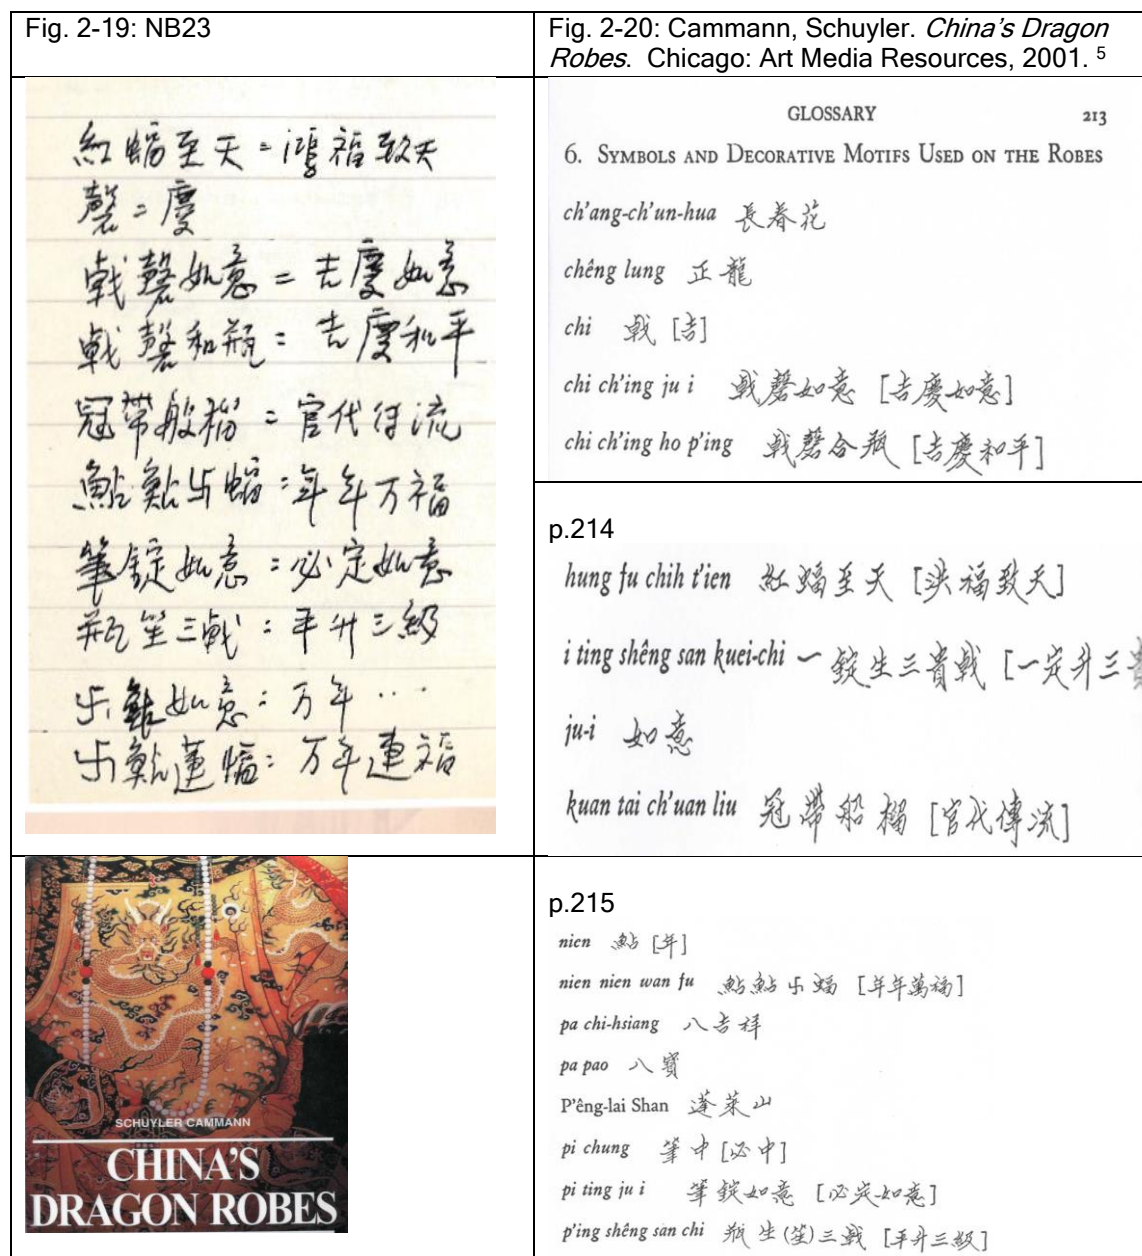 Fig. 2-19: NB23
紅蝠至天 = 鴻福致天
磬 = 慶
戟磬如意 = 吉慶如意
戟磬和瓶 = 吉慶和平
冠帶般榴 = 官代待流
鮎鮎卐蝠 : 年年万福
筆錠如意 : 必定如意
瓶笙三戟 : 平升三級
卐鮎如意 : 万年 ‥‥
卐鮎蓮蝠 : 万年連福
SCHUYLER CAMMANN
CHINA'S
DRAGON ROBES
Fig. 2-20: Cammann, Schuyler. China's Dragon
Robes. Chicago: Art Media Resources, 2001. 5
GLOSSARY 213
6. SYMBOLS AND DECORATIVE MOTIFS USED ON THE ROBES
ch'ang-ch'un-hua 長春花
chêng lung 正龍
chi 戟 [吉]
chi ch'ing ju i 戟磬如意 [吉慶如意]
chi ch'ing ho p'ing 戟磬合瓶 [吉慶和平]
p.214
hung fu chih t'ien 紅蝠至天 [洪福致天]
i ting shêng san kuei-chi 一錠生三貴戟 [一定升三貴
ju-i 如意
kuan tai ch'uan liu 冠帶船榴 [官代傳流]
p.215
nien 鮎 [年]
nien nien wan fu 鮎鮎卐蝠 [年年萬福]
pa chi-hsiang 八吉祥
pa pao 八寶
P'êng-lai Shan 蓬萊山
pi chung 筆中 [必中]
pi ting ju i 筆錠如意 [必定如意]
p'ing shêng san chi 瓶生(笙)三戟 [平升三級]